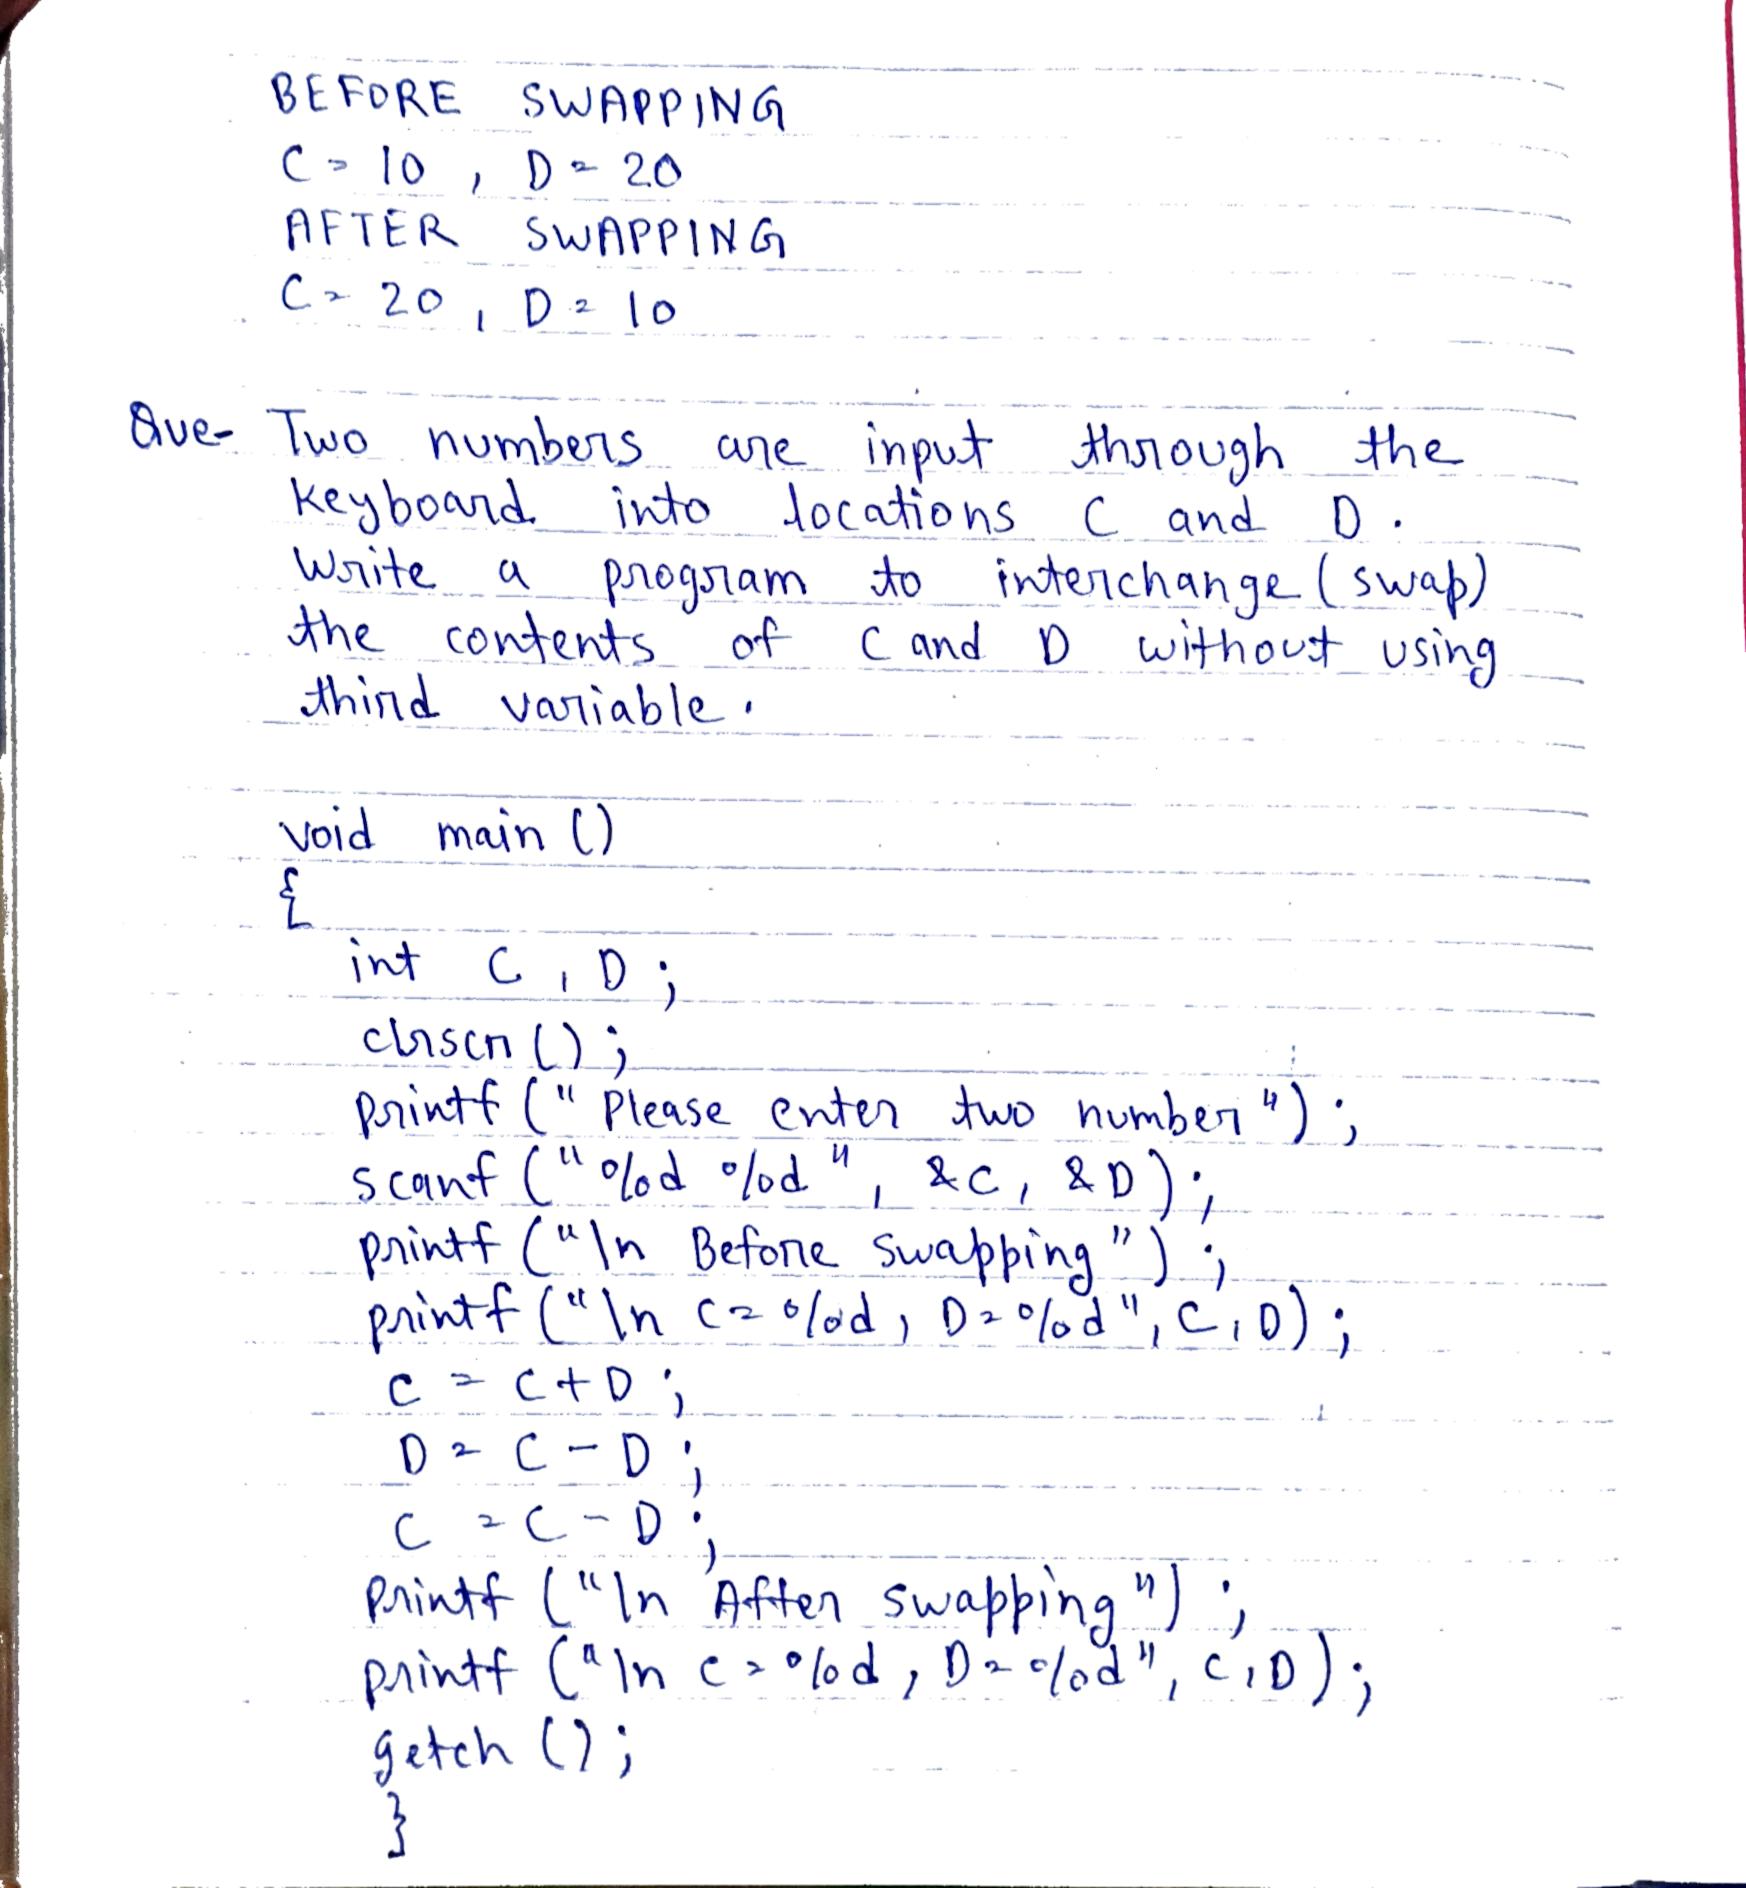 BEFORE SWAPPING
C = 10 , D = 20
AFTER SWAPPING
C = 20 , D = 10
Que- Two numbers are input through the
keyboard into locations C and D.
Write a program to interchange (swap)
the contents of C and D without using
third variable.
void main ()
{
int C , D ;
clrscr () ;
printf (" Please enter two number") ;
scanf (" %d %d ", &C, &D) ;
printf ("\n Before swapping") ;
printf ("\n C = %d, D = %d", C, D) ;
C = C + D ;
D = C - D ;
C = C - D ;
Printf ("\n After swapping") ;
printf ("\n C = %d, D = %d", C, D) ;
getch () ;
}